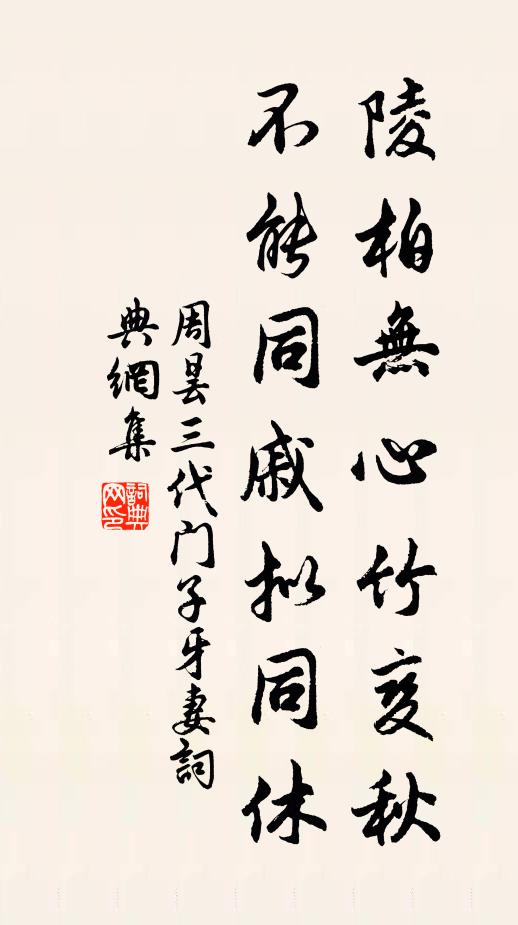 陵柏無心竹變秋
不能同戚擬同休
周昙三代门子牙妻詞
典網集
詞典网印